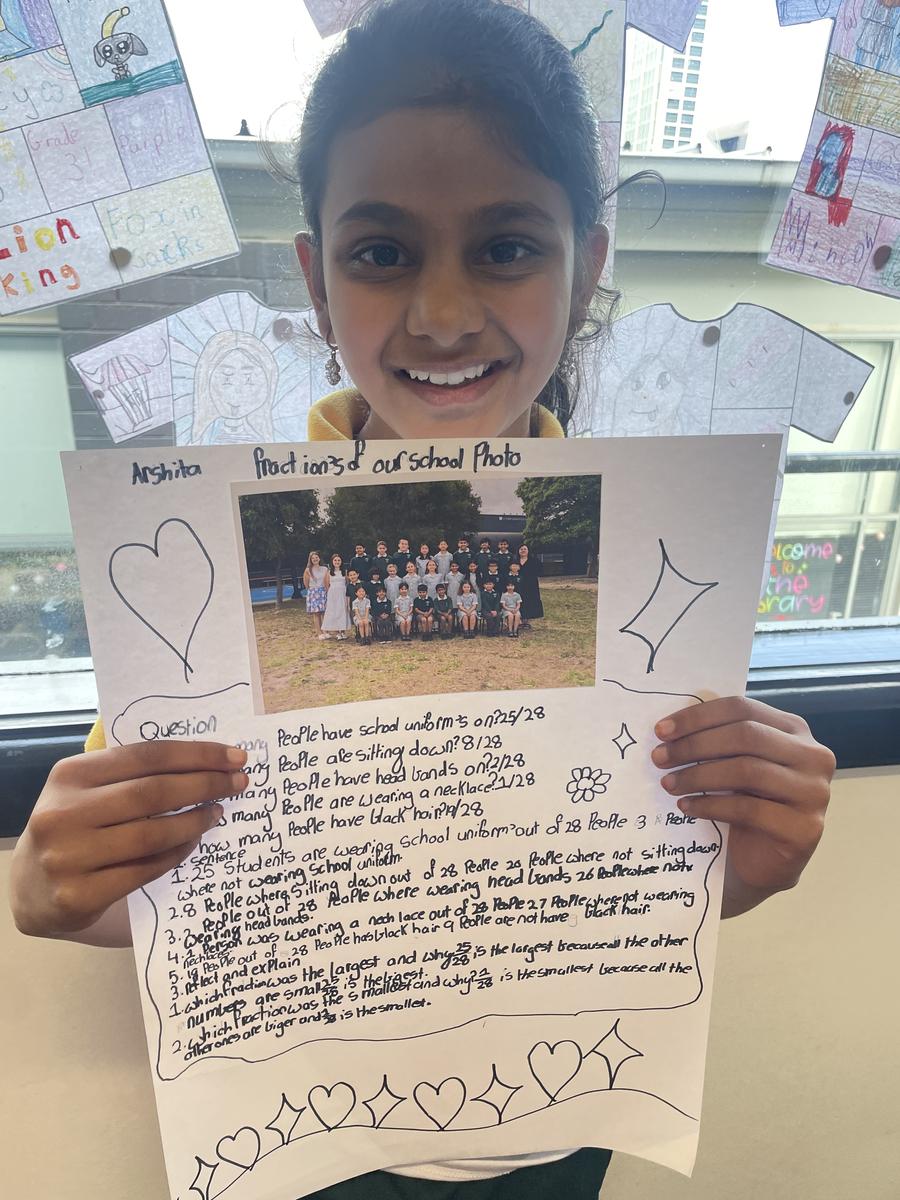 Grade
3!
Purple
Lion
King
Fox in
Socks
Arshita fraction's of our school Photo
Question
many People have school uniform's on? 25/28
many People are sitting down? 8/28
many People have head bands on? 2/28
many People are wearing a necklace? 1/28
how many People have black hair? 19/28
2. sentence
1. 25 Students are wearing school uniform out of 28 People 3 People
where not wearing school uniform.
2. 8 People where sitting down out of 28 People 20 People where not sitting down
3. 2 People out of 28 People where wearing head bands 26 People where not
wearing head bands.
4. 1 Person was wearing a necklace out of 28 People 27 People where not wearing
necklaces
5. 19 People out of 28 People has black hair 9 People are not have black hair.
3. Reflect and explain
1. which fraction was the largest and why? 25/28 is the largest because all the other
numbers are small 25/28 is the bigest.
2. which fraction was the smallest and why? 1/28 is the smallest because all the
other ones are biger and is the smallest.
welcome
to
the
library